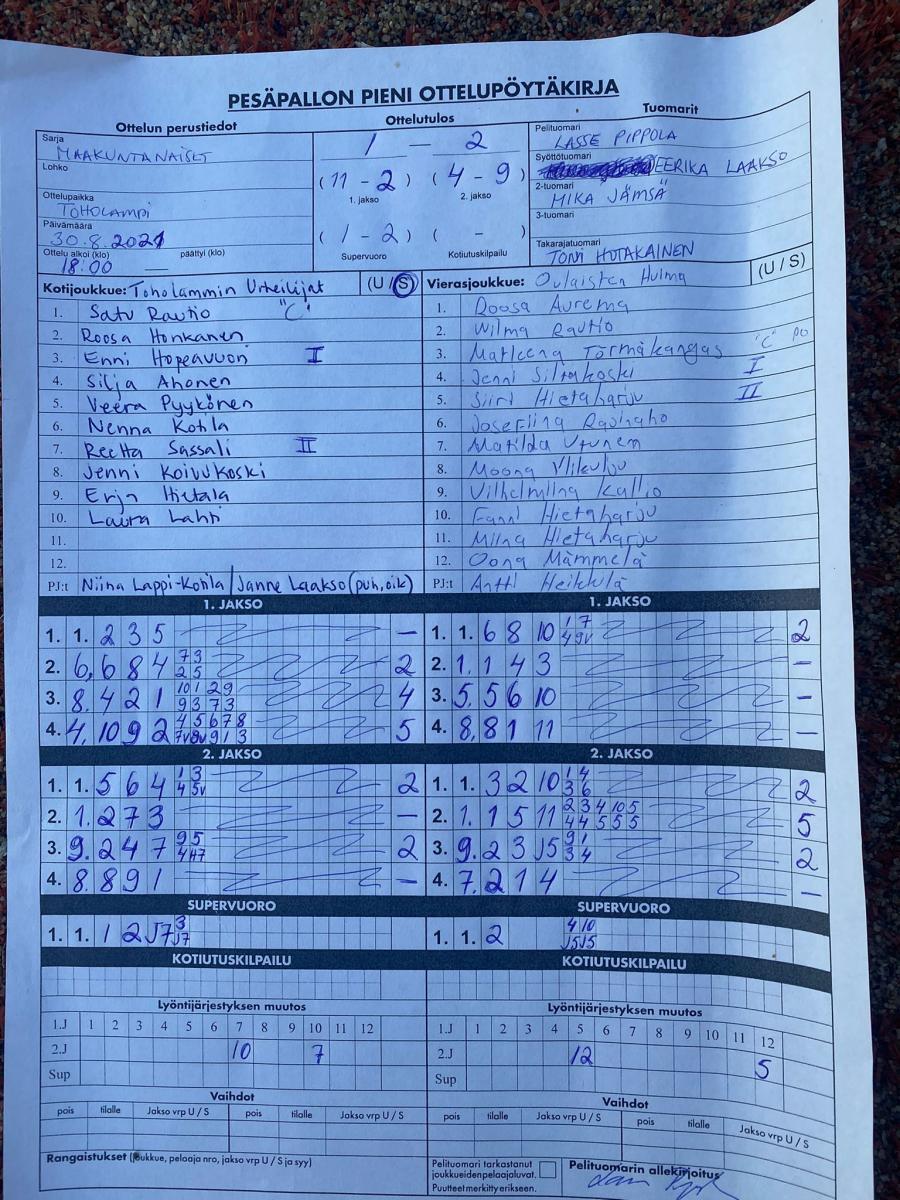 PESÄPALLON PIENI OTTELUPÖYTÄKIRJA
Ottelun perustiedot
Sarja
MAAKUNTANAISET
Lohko
Ottelupaikka
TOHOLAMPI
Päivämäärä
30.8.2021
Ottelu alkoi (klo) päättyi (klo)
18.00 —
Ottelutulos
1 — 2
(11 - 2) (4 - 9)
1. jakso 2. jakso
(1 - 2) ( - )
Supervuoro Kotiutuskilpailu
Tuomarit
Pelituomari
LASSE PIPPOLA
Syöttötuomari
EERIKA LAAKSO
2-tuomari
MIKA JÄMSÄ
3-tuomari
Takarajatuomari
TONI HOTAKAINEN
Kotijoukkue: Toholammin Urheilijat (U / S)
1. Satu Rautio "C"
2. Roosa Honkanen
3. Enni Hopeavuori I
4. Silja Ahonen
5. Veera Pyykönen
6. Nenna Kotila
7. Reetta Sassali II
8. Jenni Koivukoski
9. Erja Hietala
10. Laura Lahti
11.
12.
PJ:t Niina Lappi-Kotila / Janne Laakso (puh.oik)
Vierasjoukkue: Oulaisten Huima (U / S)
1. Roosa Aurema
2. Wilma Rautio
3. Marleena Törmäkangas "C" PO
4. Jenni Siltakoski I
5. Siiri Hietaharju II
6. Josefiina
7. Matilda
8. Moona Ylikulju
9. Vilhelmiina Kallio
10. Fanni Hietaharju
11. Miina Hietaharju
12. Oona Mämmelä
PJ:t Antti Heikkilä
1. JAKSO
1. 1. 2 3 5 —
2. 6. 6 8 4 7 3 2
2 5
3. 8. 4 2 1 10 1 2 9 4
9 3 7 3
4. 4. 10 9 2 4 5 6 7 8 5
7v 8v 9 1 3
1. JAKSO
1. 1. 6 8 10 1 7 2
4 9v
2. 1. 1 4 3 —
3. 5. 5 6 10 —
4. 8. 8 1 11 —
2. JAKSO
1. 1. 5 6 4 1 3 2
4 5v
2. 1. 2 7 3 —
3. 9. 2 4 7 9 5 2
4
4. 8. 8 9 1 —
2. JAKSO
1. 1. 3 2 10 1 4 2
3 6
2. 1. 1 5 11 2 3 4 10 5 5
4 4 5 5 5
3. 9. 2 3 J5 9 1 2
3 4
4. 7. 2 1 4 —
SUPERVUORO
1. 1. 1 2 J7 3
J7
SUPERVUORO
1. 1. 2 4 10
J5 J5
KOTIUTUSKILPAILU
KOTIUTUSKILPAILU
Lyöntijärjestyksen muutos
1.J 1 2 3 4 5 6 7 8 9 10 11 12
2.J 10 7
Sup
Lyöntijärjestyksen muutos
1.J 1 2 3 4 5 6 7 8 9 10 11 12
2.J 12 5
Sup
Vaihdot
pois tilalle Jakso vrp U / S pois tilalle Jakso vrp U / S
Vaihdot
pois tilalle Jakso vrp U / S pois tilalle Jakso vrp U / S
Rangaistukset (Joukkue, pelaaja nro, jakso vrp U / S ja syy)
Pelituomari tarkastanut
joukkueiden pelaajaluvat.
Puutteet merkitty erikseen.
Pelituomarin allekirjoitus